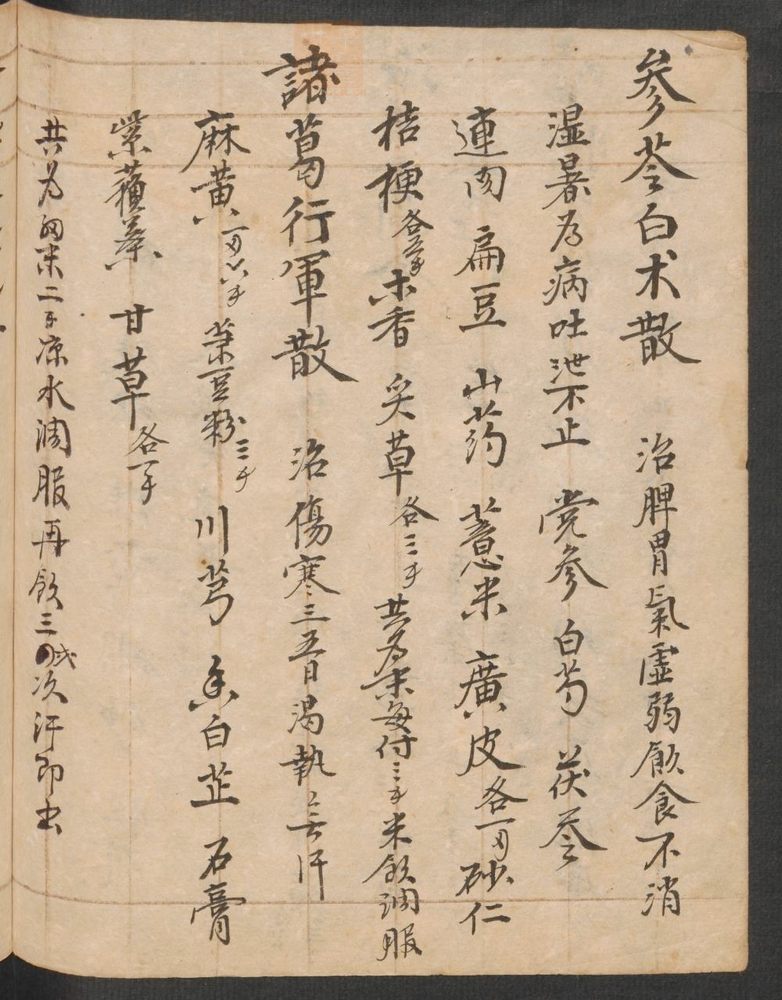 參苓白术散 治脾胃氣虛弱飲食不消
湿暑为病吐泄不止 党参 白芍 茯苓
連肉 扁豆 山药 薏米 廣皮各一両 砂仁
桔梗各五千 木香 炙草各三千 共为末每付三千米飲調服
諸葛行軍散 治傷寒三五日渴熱無汗
麻黄一両六千 菉豆粉三千 川芎 白芷 石膏
紫蘓葉 甘草各一千
共为细末二千凉水调服再飲三四次汗即出